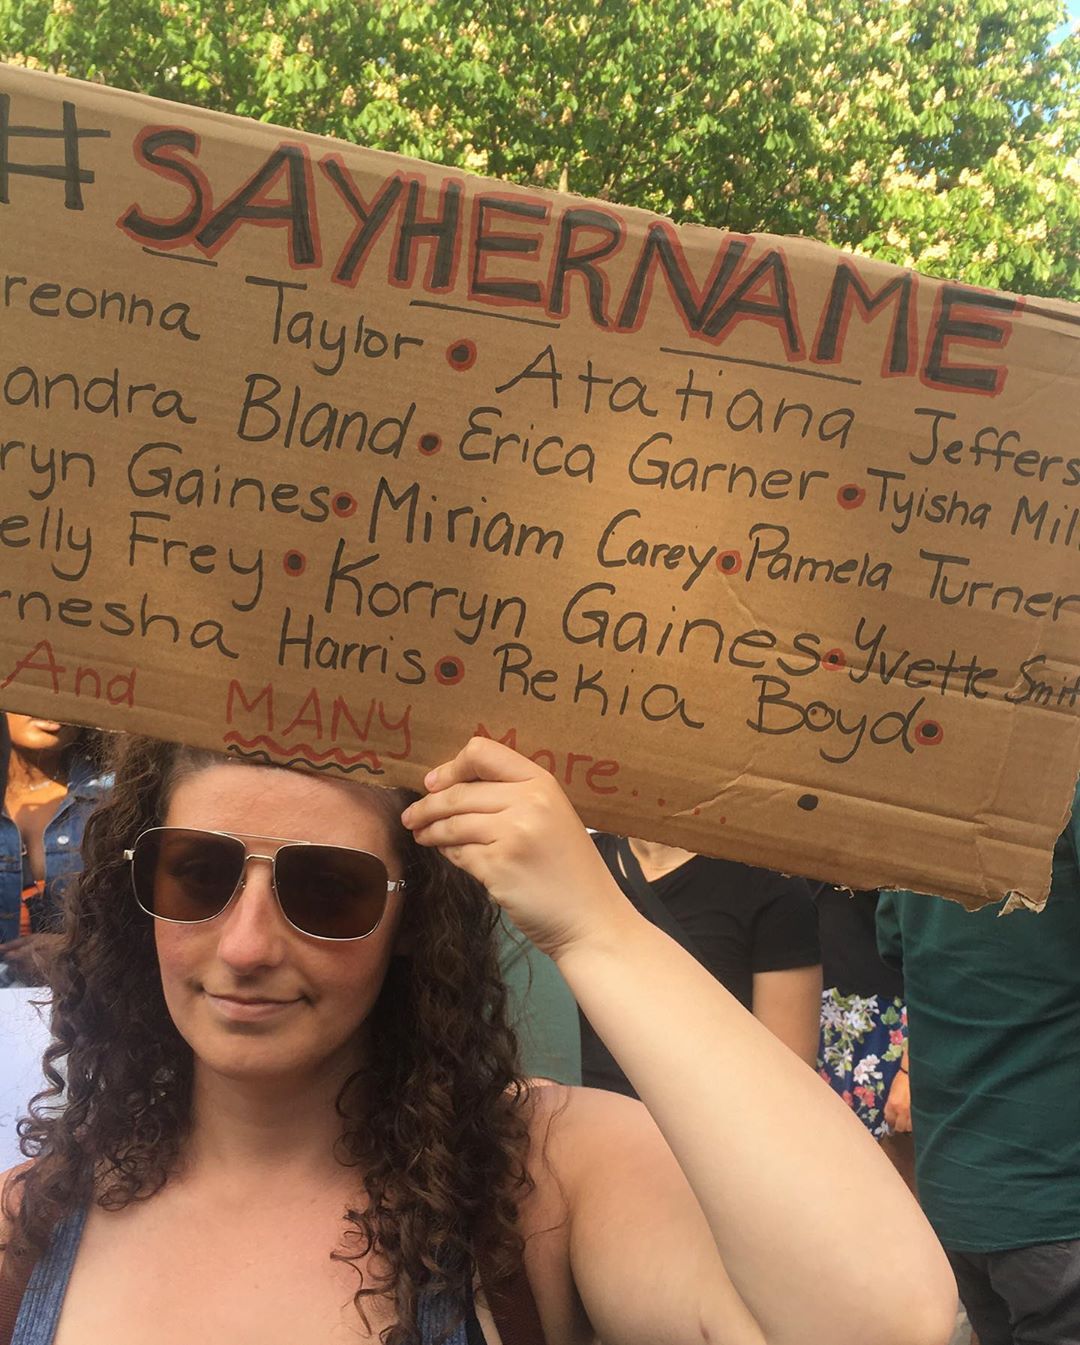 #SAYHERNAME
reonna Taylor • Atatiana Jeffers
andra Bland • Erica Garner • Tyisha Mil
ryn Gaines • Miriam Carey • Pamela Turner
elly Frey • Korryn Gaines • Yvette Smit
rnesha Harris • Rekia Boyd •
And MANY More....